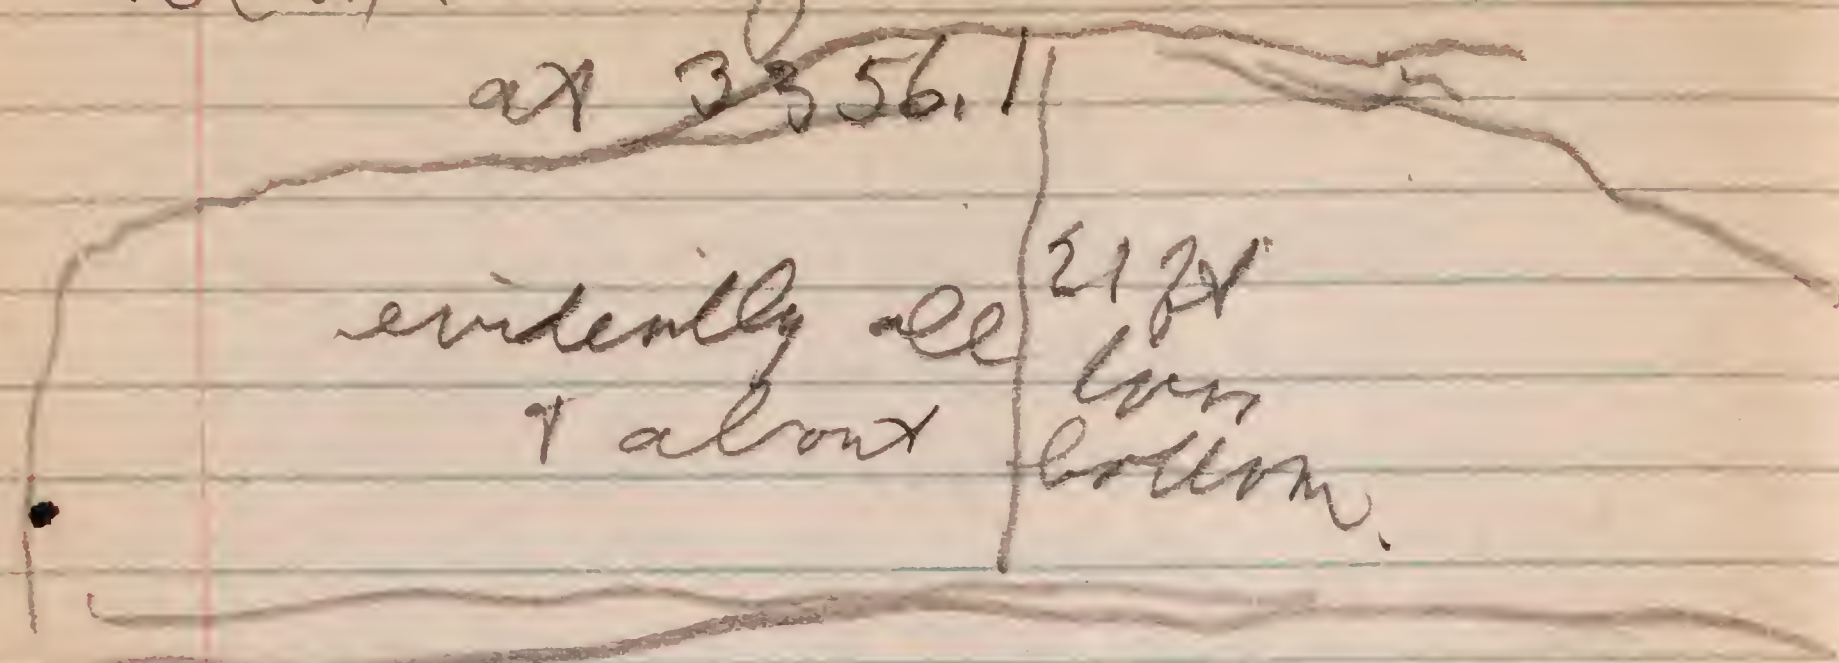 at 3356.1
evidently all
& about
21 ft
bottom.